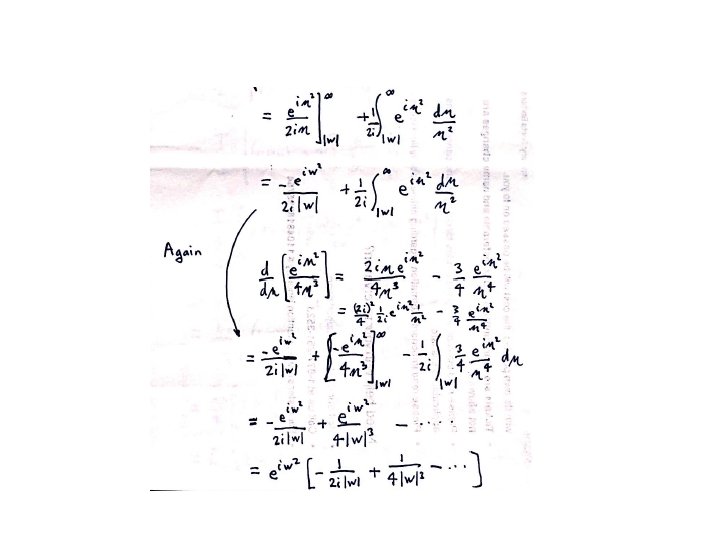 = \frac{e^{in^2}}{2in} \Big]_{|w|}^{\infty} + \frac{1}{2i} \int_{|w|}^{\infty} e^{in^2} \frac{dn}{n^2}
= \frac{-e^{iw^2}}{2i|w|} + \frac{1}{2i} \int_{|w|}^{\infty} e^{in^2} \frac{dn}{n^2}
Again
\frac{d}{dn} \left[ \frac{e^{in^2}}{4n^3} \right] = \frac{2in e^{in^2}}{4n^3} - \frac{3}{4} \frac{e^{in^2}}{n^4}
= \frac{(2i)^2}{4} \frac{1}{2i} e^{in^2} \frac{1}{n^2} - \frac{3}{4} \frac{e^{in^2}}{n^4}
= \frac{-e^{iw^2}}{2i|w|} + \left[ \frac{-e^{in^2}}{4n^3} \right]_{|w|}^{\infty} - \frac{1}{2i} \int_{|w|} \frac{3}{4} \frac{e^{in^2}}{n^4} dn
= -\frac{e^{iw^2}}{2i|w|} + \frac{e^{iw^2}}{4|w|^3} - \cdots
= e^{iw^2} \left[ -\frac{1}{2i|w|} + \frac{1}{4|w|^3} - \cdots \right]